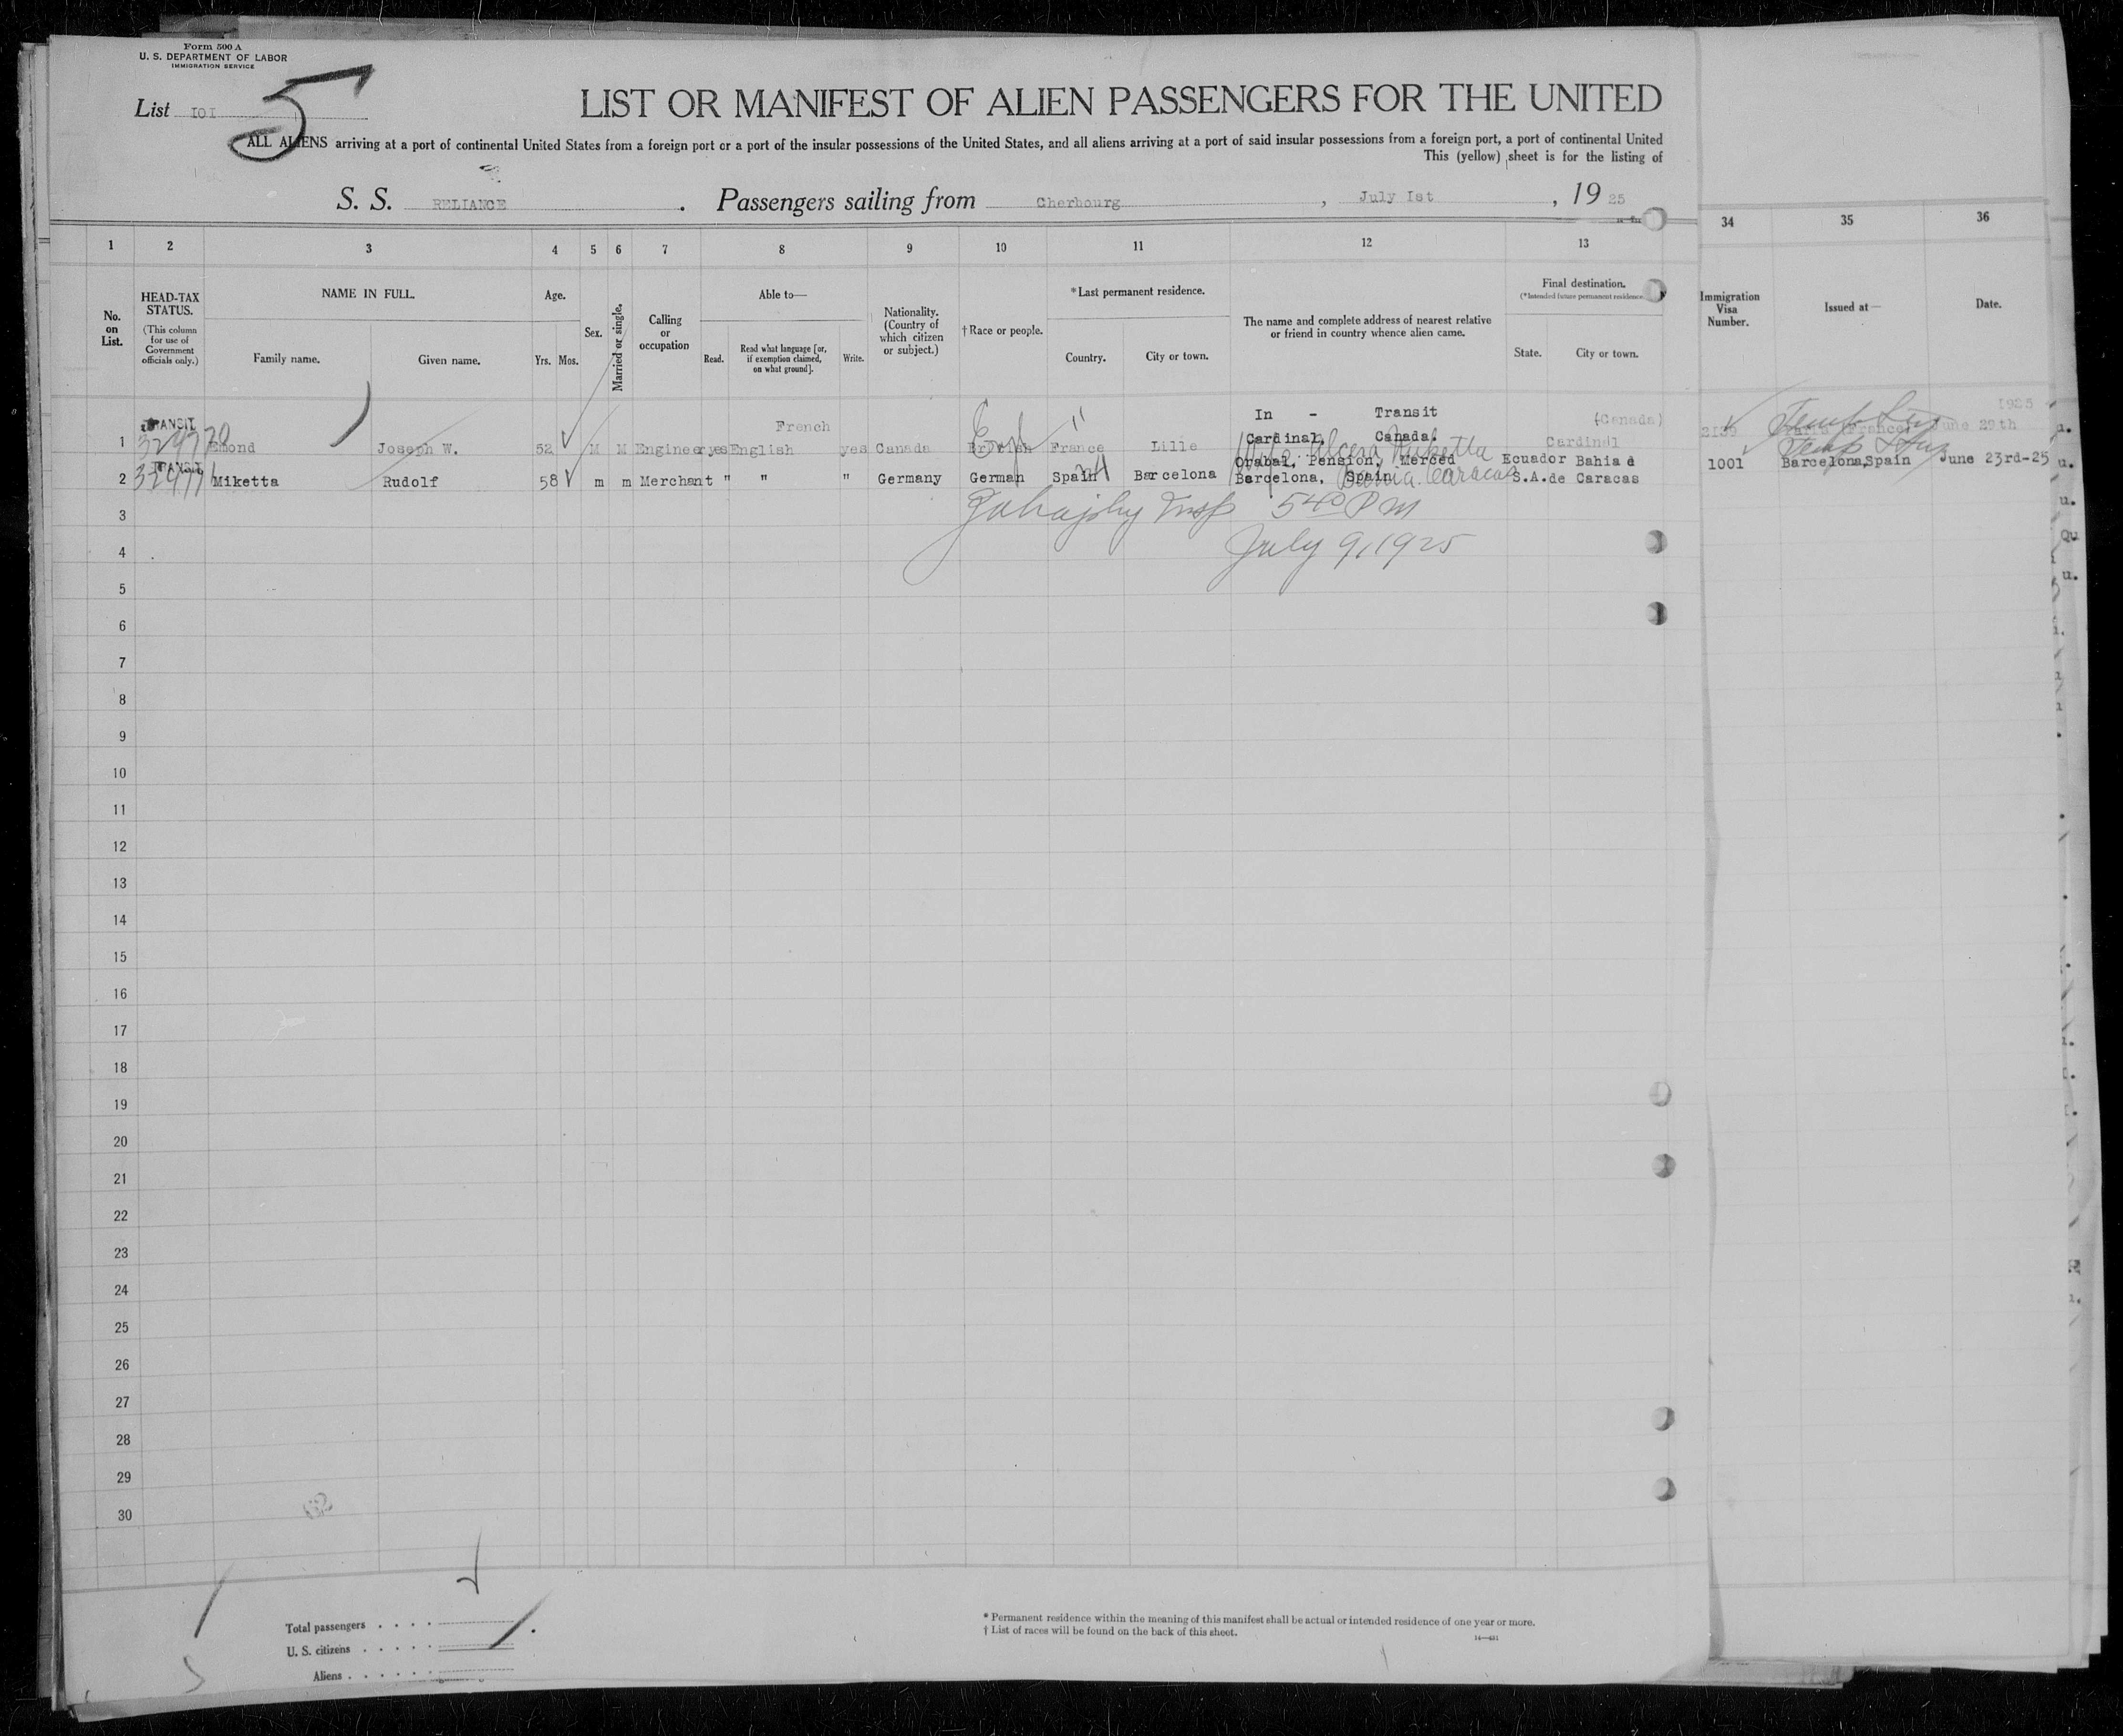 Form 500 A
U. S. DEPARTMENT OF LABOR
IMMIGRATION SERVICE
List IOI
5
LIST OR MANIFEST OF ALIEN PASSENGERS FOR THE UNITED
ALL ALIENS arriving at a port of continental United States from a foreign port or a port of the insular possessions of the United States, and all aliens arriving at a port of said insular possessions from a foreign port, a port of continental United
This (yellow) sheet is for the listing of
S. S. RELIANCE . Passengers sailing from Cherbourg , July Ist , 19 25
1 2 3 4 5 6 7 8 9 10 11 12 13 34 35 36
No. on List.
HEAD-TAX STATUS.
(This column for use of Government officials only.)
NAME IN FULL.
Family name. Given name.
Age.
Yrs. Mos.
Sex.
Married or single.
Calling or occupation
Able to—
Read. Read what language [or, if exemption claimed, on what ground]. Write.
Nationality. (Country of which citizen or subject.)
† Race or people.
*Last permanent residence.
Country. City or town.
The name and complete address of nearest relative or friend in country whence alien came.
Final destination.
(*Intended future permanent residence
State. City or town.
Immigration Visa Number.
Issued at—
Date.
TRANSIT French In - Transit (Canada) 1925
1 Emond Joseph W. 52 M M Engineer yes English yes Canada British France Lille Cardinal, Canada. Cardinal June 29th
TRANSIT Orabal, Pension, Merced Ecuador Bahia d
2 Miketta Rudolf 58 m m Merchant " " " Germany German Spain Barcelona Barcelona, Spain S.A. de Caracas 1001 Barcelona, Spain June 23rd-25
3 Insp 5 40 P M
4 July 9, 1925
5
6
7
8
9
10
11
12
13
14
15
16
17
18
19
20
21
22
23
24
25
26
27
28
29
30
Total passengers . . . .
U. S. citizens . . . . .
Aliens . . . . . .
* Permanent residence within the meaning of this manifest shall be actual or intended residence of one year or more.
† List of races will be found on the back of this sheet.
14—431